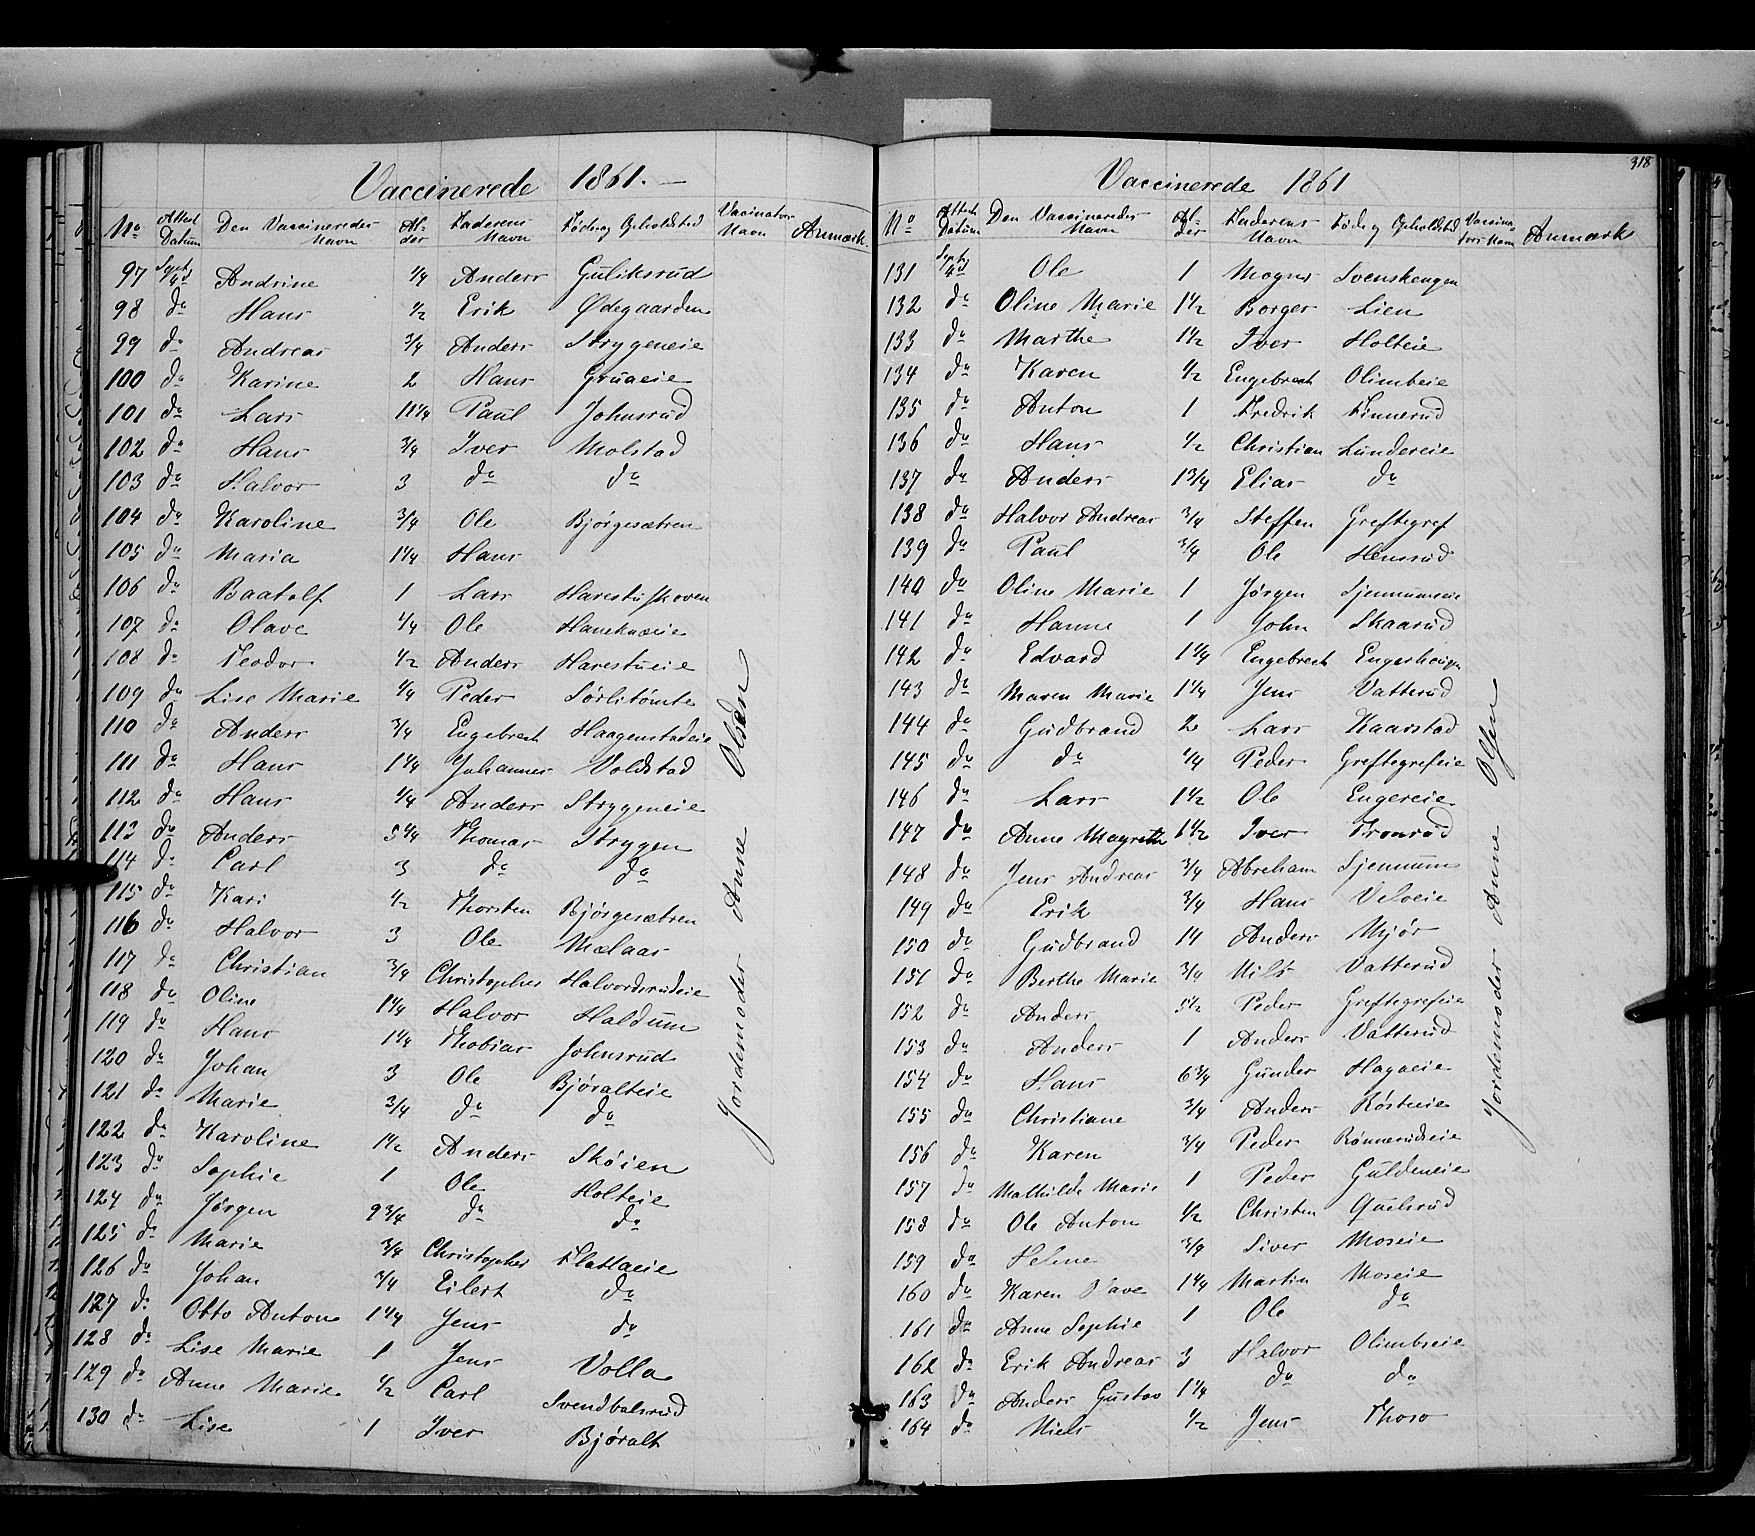 Vaccinerede 1861. —
No Attest Datum Den Vaccineredes Navn Al-der Faderens Navn Føde og Opholdsted Vaccinators Navn Anmærk.
97 Septb 4d Andrine 1/4 Anders Guliksrud
98 do Hans 1/2 Erik Ødegaarden
99 do Andreas 3/4 Anders Strygeneie
100 do Karine 2 Hans Gruaeie
101 do Lars 11 1/4 Paul Johnsrud
102 do Hans 3/4 Iver Molstad
103 do Halvor 3 do do
104 do Karoline 3/4 Ole Bjørgesætren
105 do Maria 1 1/4 Hans
106 do Baatolf 1 Lars Harestuskoven
107 do Olave 1/4 Ole Haneknæeie
108 do Teodor 1/2 Anders Harestueie
109 do Lise Marie 1/4 Peder Sørlitømte
110 do Anders 3/4 Engebrech Haagenstadeie
111 do Hans 1 1/4 Johannes Voldstad
112 do Hans 1/4 Anders Strygeneie
113 do Anders 5 1/4 Thomas Strygen
114 do Carl 3 do do
115 do Kari 1/2 Thorsten Bjørgesætren
116 do Halvor 3 Ole Mælaas
117 do Christian 3/4 Christopher Halvordsrudeie
118 do Oline 1 1/4 Halvor Haldum
119 do Hans 1 1/4 Thobias Johnsrud
120 do Johan 3 Ole Bjøralteie
121 do Marie 3/4 do do
122 do Karoline 1 1/2 Anders Skøien
123 do Sophie 1 Ole Holteie
124 do Jørgen 9 3/4 do do
125 do Marie 3/4 Christopher Flatlaeie
126 do Johan 3/4 Eilert do
127 do Otto Anton 1 1/4 Jens do
128 do Lise Marie 1 Jens Volla
129 do Anne Marie 1/2 Carl Svendbalsrud
130 do Lise 1 Iver Bjøralt
Jordemoder Anne Olsen
318
Vaccinerede 1861
No Attests Datum Den Vaccineredes Navn Al-der Faderens Navn Føde og Opholdsted Vaccinators Navn Anmærk
131 Septb 4d Ole 1 Mogns Svenskengen
132 do Oline Marie 1 1/2 Borger Lien
133 do Marthe 1 1/2 Iver Holteie
134 do Karen 1/2 Engebrech Olimbeie
135 do Anton 1 Fredrik Finnerud
136 do Hans 1/2 Christian Lundereie
137 do Anders 1 3/4 Elias do
138 do Halvor Andreas 3/4 Steffen Greftegref
139 do Paul 3/4 Ole Hensrud
140 do Oline Marie 1 Jørgen Sjennumeie
141 do Hanne 1 John Skaarud
142 do Edvard 1 1/4 Engebrech Engerhougen
143 do Maren Marie 1 1/4 Jens Vatterud
144 do Gudbrand 2 Lars Kaarstad
145 do do 1/4 Peder Greftegrefeie
146 do Lars 1 1/2 Ole Engereie
147 do Anne Magrethe 1 1/2 Iver Tronrud
148 do Jens Andreas 3/4 Abraham Sjennum
149 do Erik 3/4 Hans Veloeie
150 do Gudbrand 14 Anders Mjør
151 do Berthe Marie 3/4 Nils Vatterud
152 do Anders 5 1/2 Peder Greftegrefeie
153 do Anders 1 Anders Vatterud
154 do Hans 6 3/4 Gunder Hagaeie
155 do Christiane 3/4 Anders Røsteeie
156 do Karen 3/4 Peder Rønnerudseie
157 do Mathilde Marie 1 Peder Guldeneie
158 do Ole Anton 1/2 Christen Quelsrud
159 do Helene 3/4 Siver Moseie
160 do Karen Olave 1 1/4 Martin Moseie
161 do Anne Sophie 1 Ole do
162 do Erik Andreas 3 Halvor Olimbseie
163 do Anders Gustav 1 1/4 do do
164 do Niels 1/2 Jens Thoso
Jordemoder Anne Olsen